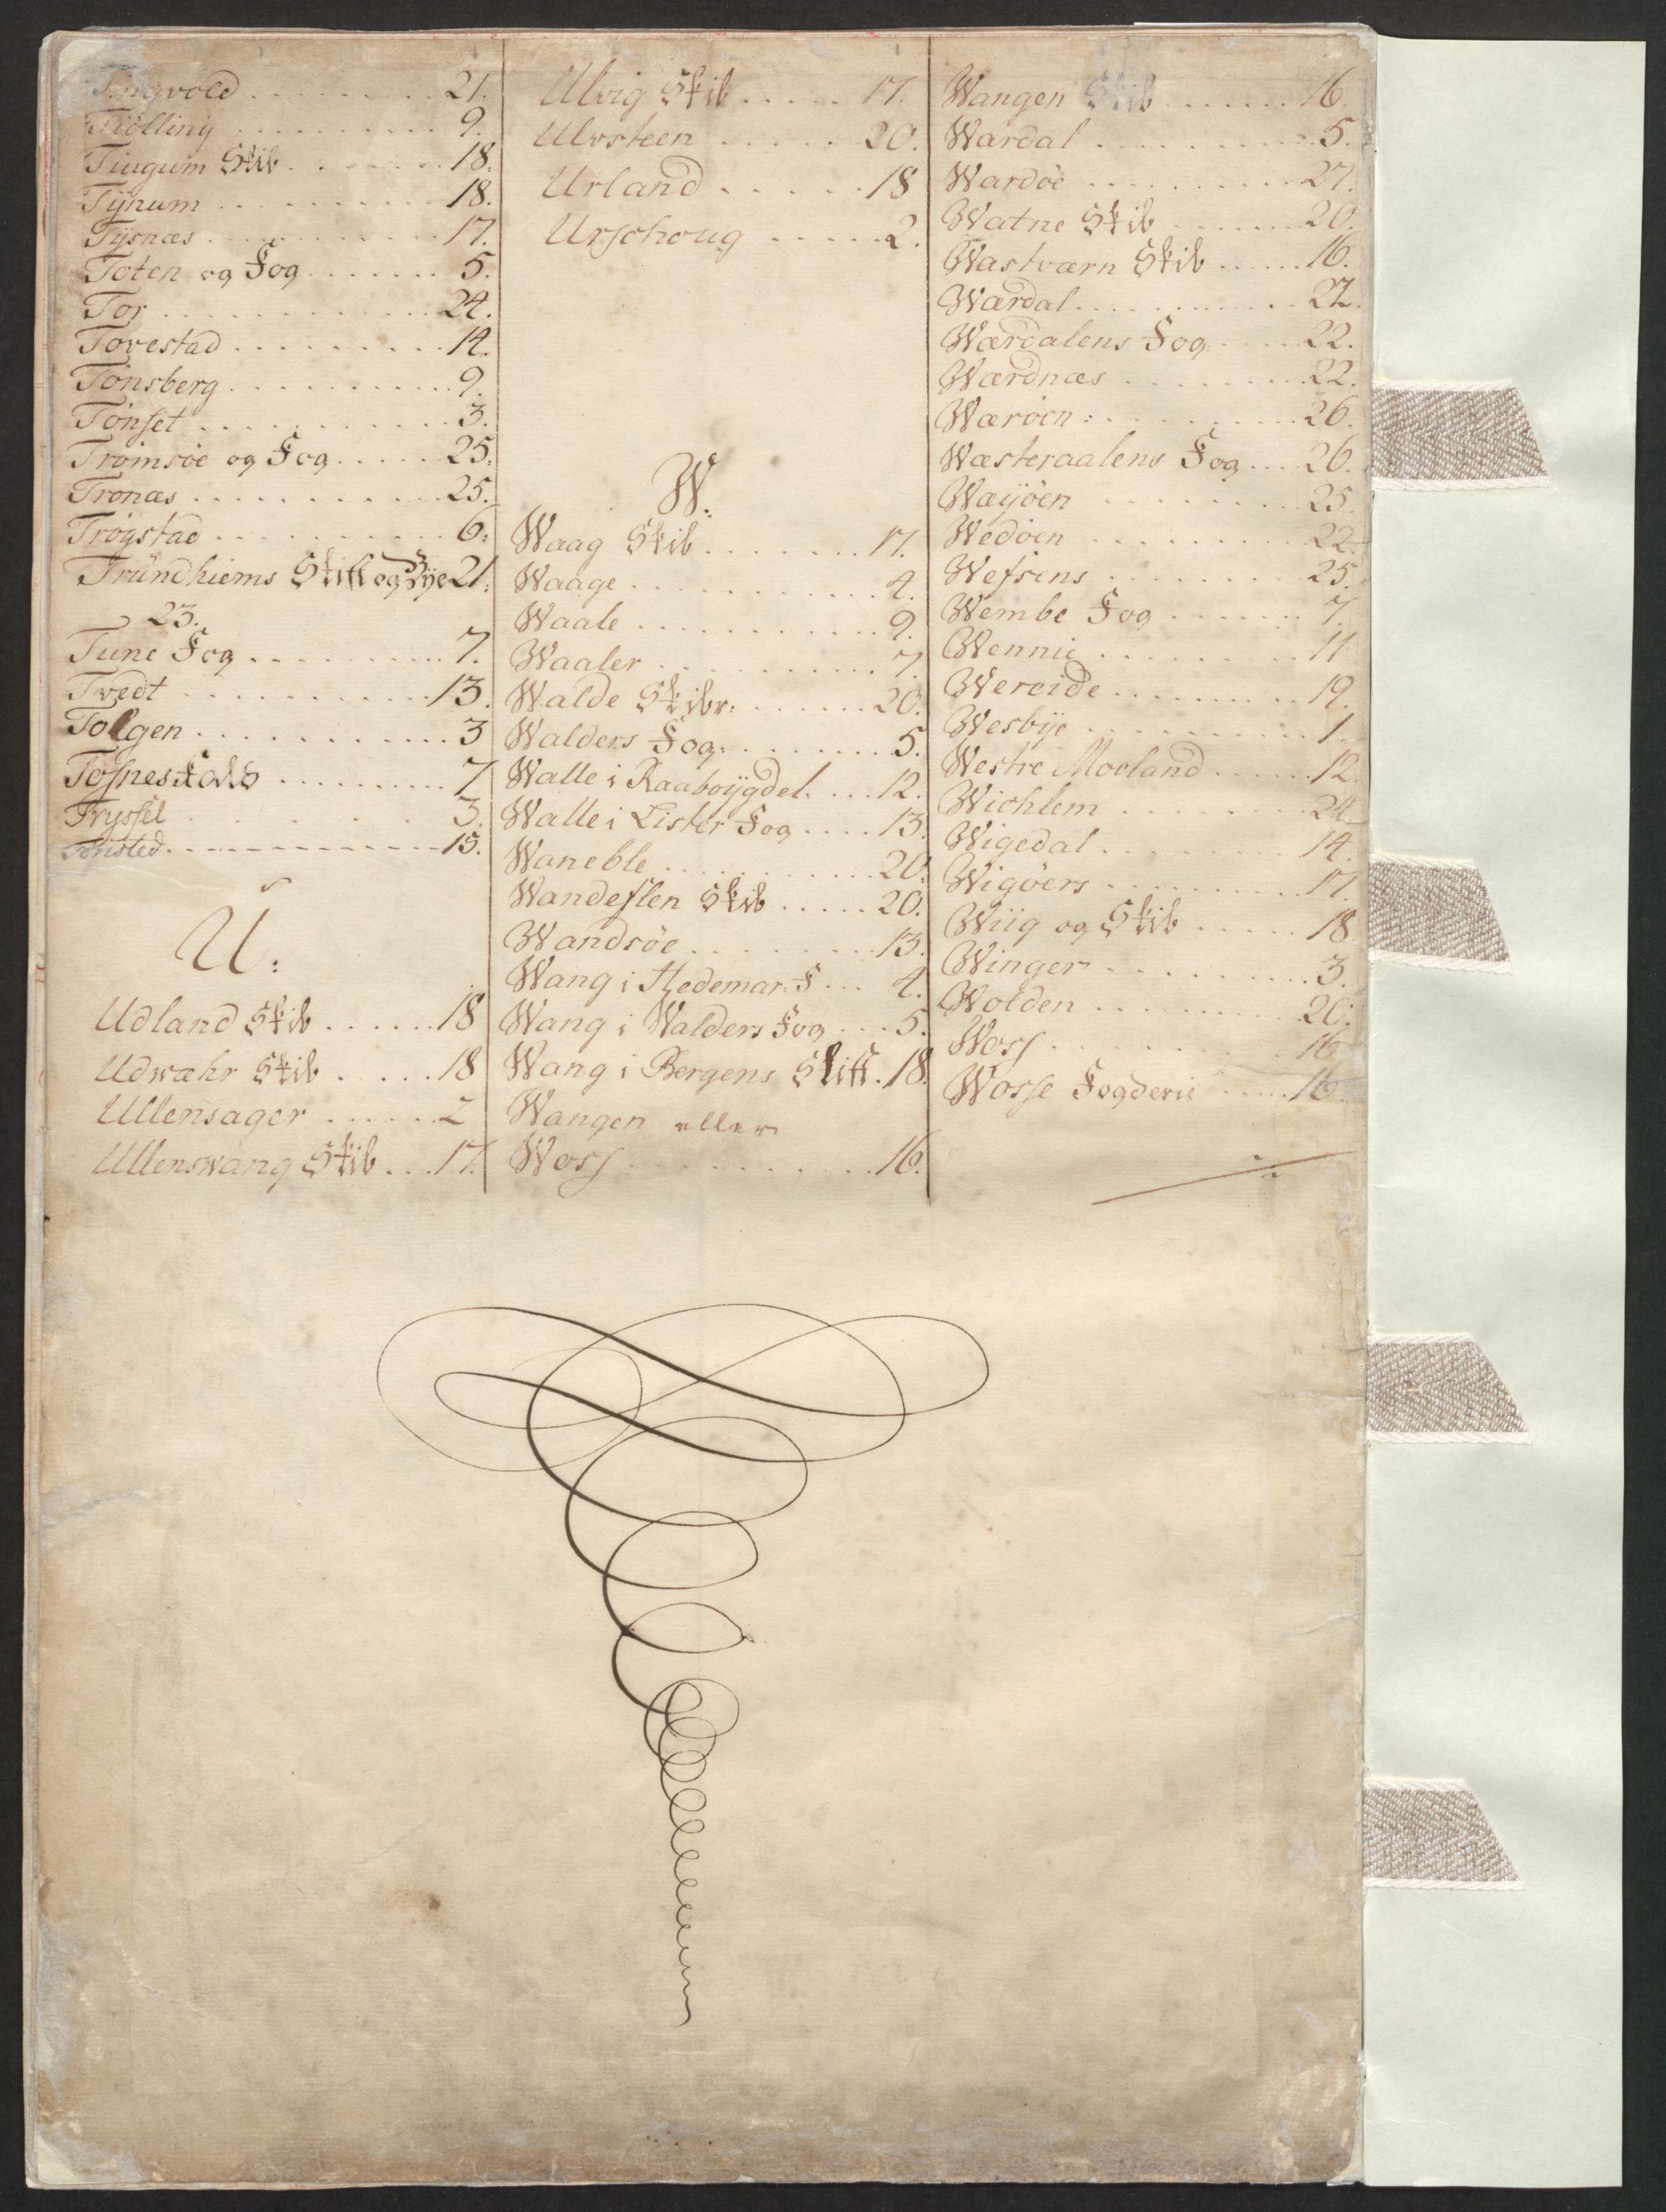 Tingvold . . . . . . . . . 21.
Tiølling . . . . . . . . . 9.
Tiugum Skib . . . . . . . 18.
Tÿnum . . . . . . . . . 18.
Tÿsnæs . . . . . . . . . 17.
Toten og Fog . . . . . . . 5.
Tor . . . . . . . . . . . 24.
Tovestad . . . . . . . . . 14.
Tønsberg . . . . . . . . . 9.
Tønset . . . . . . . . . . 3.
Tromsøe og Fog . . . . . 25.
Tronæs . . . . . . . . . 25.
Trøgstad . . . . . . . . . 6.
Trundhiems Stift og Bÿe 21.
23.
Tune Fog . . . . . . . . . 7.
Tvedt . . . . . . . . . . 13.
Tolgen . . . . . . . . . . 3
Tosnes . . . . . . . . . 7
Tryssel . . . . . . . . . 3.
Tonsted . . . . . . . . . 15.
U:
Udland Skib . . . . . . 18
Udwæhr Skib . . . . . 18
Ullensager . . . . . . 2
Ullenswang Skib . . . 17.
Ulvig Skib . . . . . 17.
Ulvsteen . . . . . . 20.
Urland . . . . . . 18
Urschoug . . . . . 2.
W.
Waag Skib . . . . . . . 17.
Waage . . . . . . . . . . 4.
Waale . . . . . . . . . . 9.
Waaler . . . . . . . . . . 7.
Walde Skibr. . . . . . . 20.
Walders Fog. . . . . . . . 5.
Walle i Raaboÿgdel. . . . 12.
Walle i Lister Fog . . . . 13.
Waneble . . . . . . . . . 20.
Wandeslen Skib . . . . . 20.
Wandsöe . . . . . . . . . 13.
Wang i Hedemar. F . . . 4.
Wang i Walders Fog . . . 5.
Wang i Bergens Stift . 18.
Wangen eller
Woss . . . . . . . . . . 16.
Wangen Skib . . . . . . 16.
Wardal . . . . . . . . . . 5.
Wardöe . . . . . . . . . 27.
Watne Skib . . . . . . . 20.
Wastværn Skib . . . . . 16.
Wærdal . . . . . . . . . 22.
Wærdalens Fog. . . . . 22.
Wærdnæs . . . . . . . . 22.
Wærøen . . . . . . . . . 26.
Wæsteraalens Fog . . . 26.
Wæÿöen . . . . . . . . 25.
Wedöen . . . . . . . . . 22.
Wefsens . . . . . . . . . 25.
Wembe Fog . . . . . . . 7.
Wennie . . . . . . . . . 11
Wereide . . . . . . . . . 19.
Wesbÿe . . . . . . . . . 1.
Westre Moeland . . . . . 12.
Wichlem . . . . . . . . 24.
Wigedal . . . . . . . . . 14.
Wigöers . . . . . . . . . 17.
Wiig og Skib . . . . . . 18
Winger . . . . . . . . . 3.
Wolden . . . . . . . . . 20.
Woss . . . . . . . . . . 16
Wosse Fogderie . . . . . 16